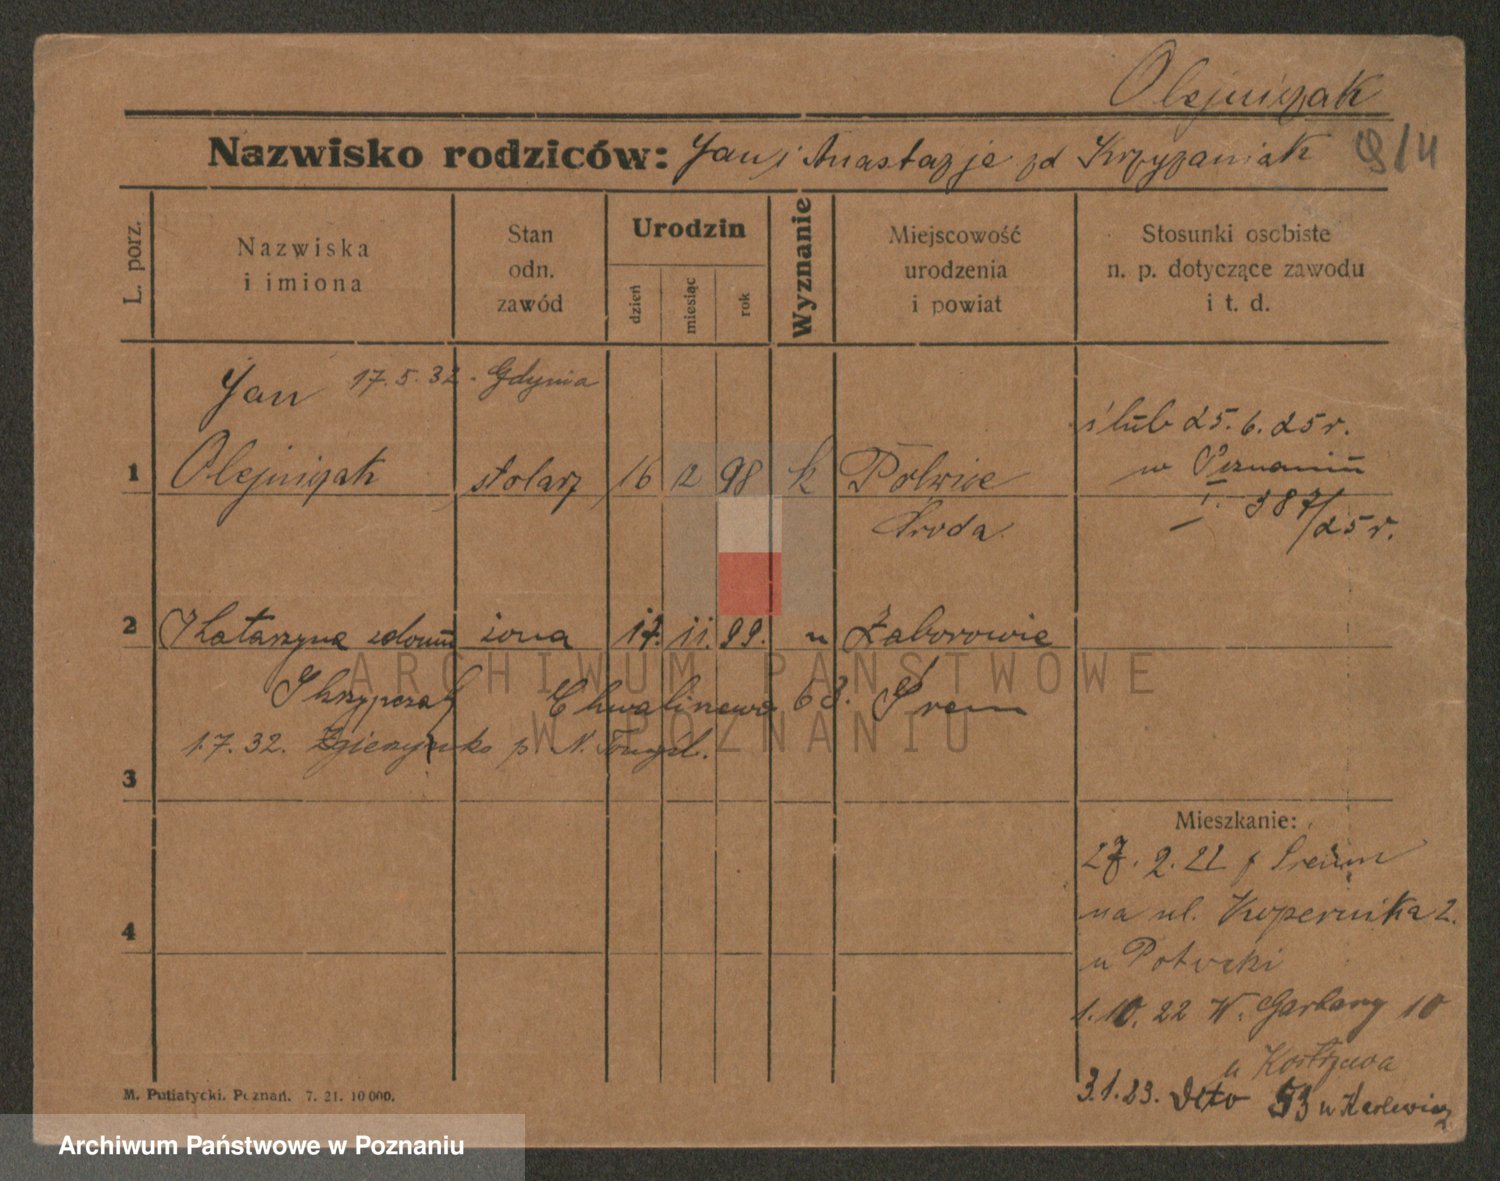 Olejniczak
Nazwisko rodziców: Jan i Anastazje zd Krzyżaniak 9/4
L. porz.
Nazwiska
i imiona
Stan
odn.
zawód
Urodzin
dzień
miesiąc
rok
Wyznanie
Miejscowość
urodzenia
i powiat
Stosunki osobiste
n. p. dotyczące zawodu
i t. d.
Jan 17.5.32 - Gdynia
1 Olejniczak stolarz 16 12 98 k Polwice
Środa
ślub 25.6.25 r.
w Poznaniu
I. 387/25 r.
2 Katarzyna zdomu żona 17. 11. 99. " Zaborowie
Skrzypczak Chwaliszewo 63. Śrem
1.7.32. p. N. Tomyśl.
3
4
Mieszkanie:
27.2.22 z Śremu
na ul. Kopernika 2.
u Potocki
1.10.22 W. Garbary 10
u
3.1.23. dito 53 u Karlewicz
M. Putiatycki. Poznań. 7. 21. 10 000.
ARCHIWUM PAŃSTWOWE
W POZNANIU
Archiwum Państwowe w Poznaniu